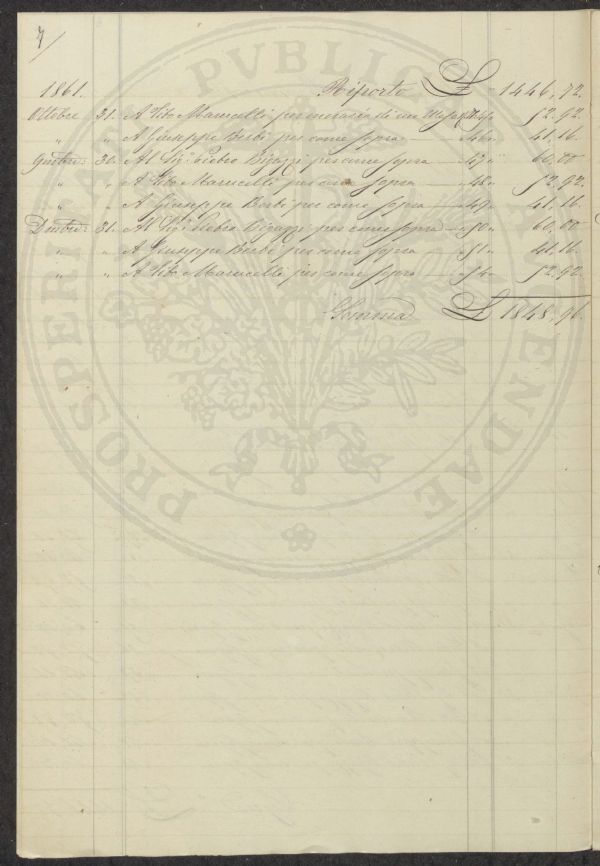 7/
1861. Riporto £ 1446,,72.
Ottobre 31. A Vito Marucelli per mesata di un 52.92.
" " A Giuseppe Berbi per come sopra " 46 " 41.16.
30. Al Sig. Bigazzi per come sopra " 47 " 60.00
" " A Vito Marucelli per come sopra " 48 " 52.92.
" " A Giuseppe Berbi per come sopra " 49 " 41.16.
31. Al Sig. Bigazzi per come sopra " 50 " 60.00
" " A Giuseppe Berbi per come sopra " 51 " 41.16.
" " A Vito Marucelli per come sopra 52.92.
Somma £ 1848,,96.
PROSPERITATI PUBLICAE AUGENDAE